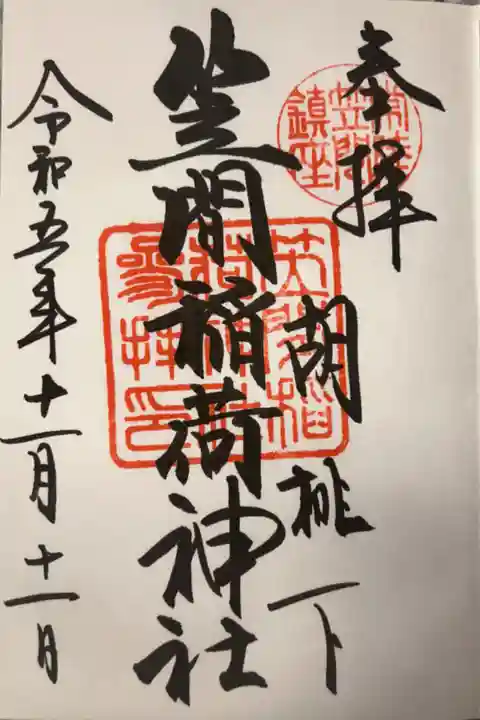 奉拝
胡桃下
笠間稲荷神社
令和五年十一月十一日
常陸
笠間
鎮座
笠間稲
荷神社
参拝印